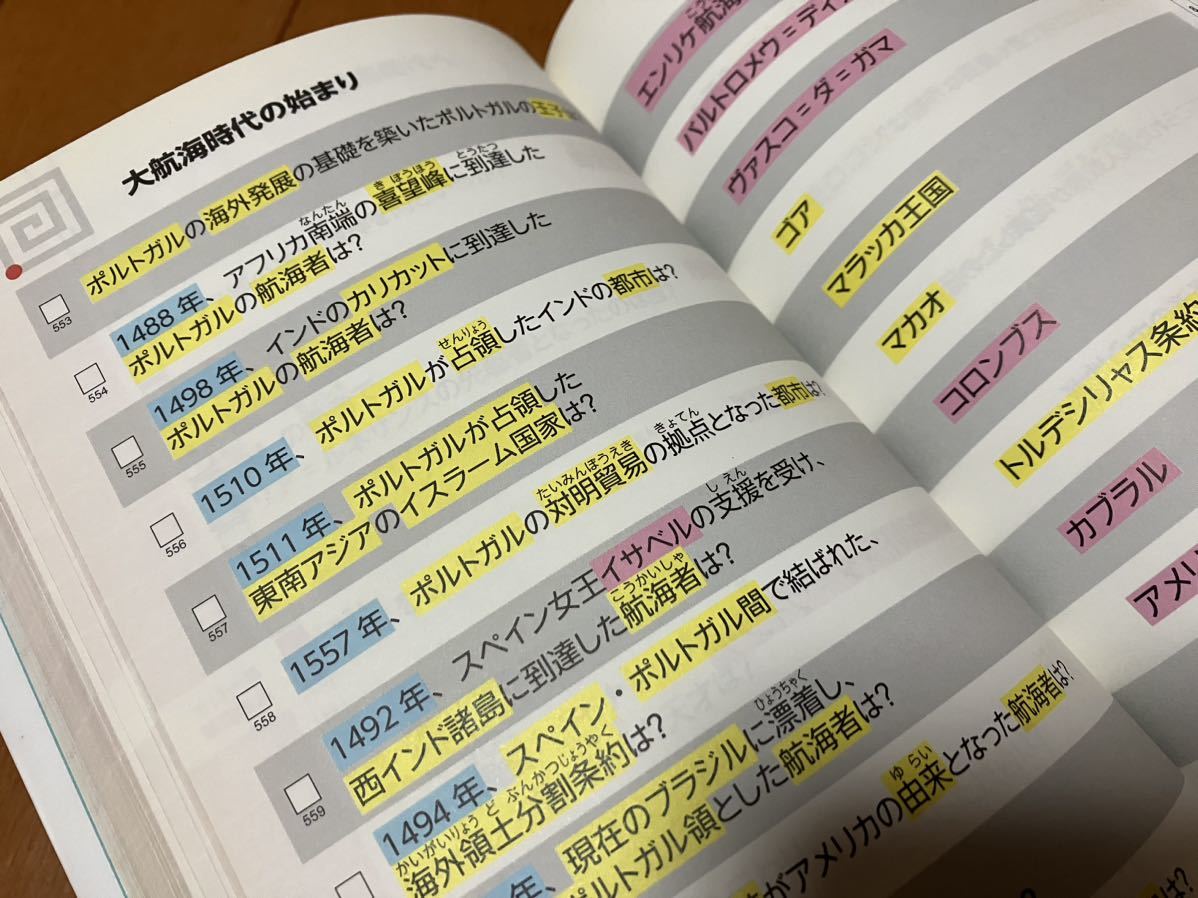 大航海時代の始まり
ポルトガルの海外発展の基礎を築いたポルトガルの王子
553
1488年、アフリカ南端の喜望峰に到達した
なんたん
きぼうほう
とうたつ
ポルトガルの航海者は?
554
1498年、インドのカリカットに到達した
ポルトガルの航海者は?
555
1510年、ポルトガルが占領したインドの都市は?
せんりょう
556
1511年、ポルトガルが占領した
東南アジアのイスラーム国家は?
557
1557年、ポルトガルの対明貿易の拠点となった都市は?
たいみんぼうえき
きょてん
558
1492年、スペイン女王イサベルの支援を受け、
しえん
西インド諸島に到達した航海者は?
こうかいしゃ
559
1494年、スペイン・ポルトガル間で結ばれた、
海外領土分割条約は?
かいがいりょうど ぶんかつじょうやく
年、現在のブラジルに漂着し、
ひょうちゃく
ポルトガル領とした航海者は?
がアメリカの由来となった航海者は?
ゆらい
エンリケ航海
こうか
バルトロメウ=ディ
ヴァスコ=ダ=ガマ
ゴア
マラッカ王国
マカオ
コロンブス
トルデシリャス条約
カブラル
アメリ